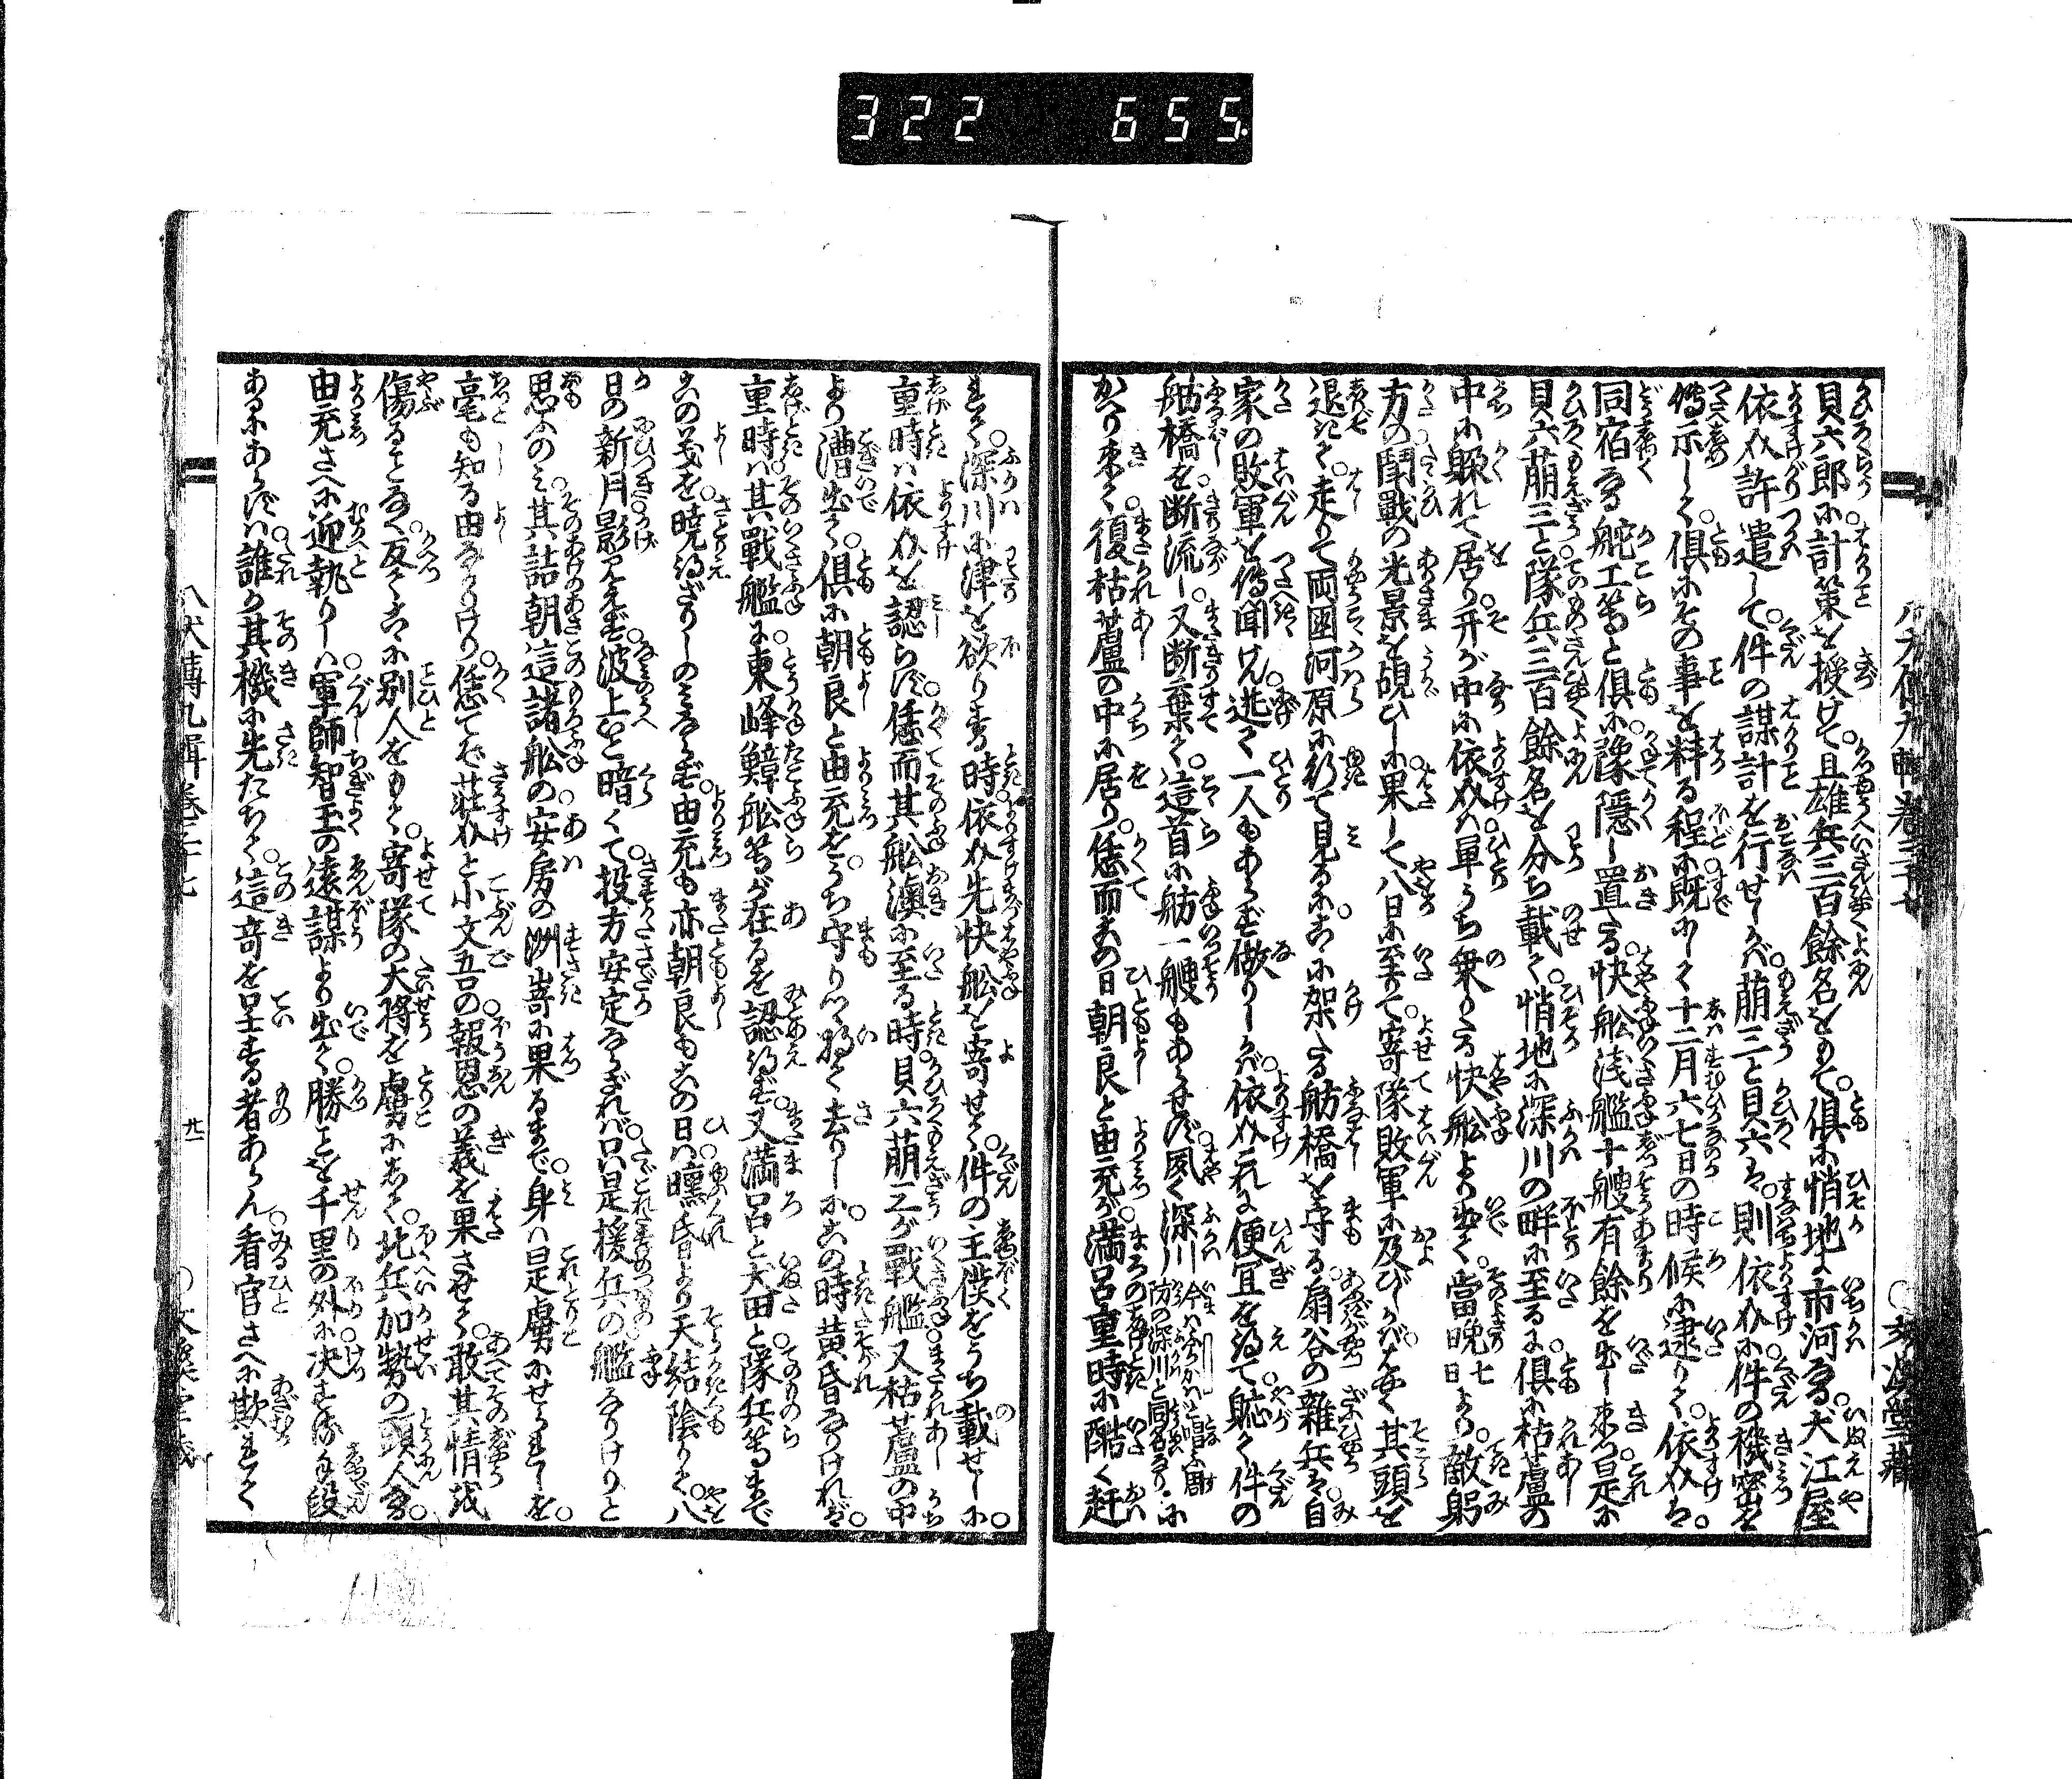 322 655
貝六郎に計策を授けて、且雄兵三百餘名をもて、倶に悄地に市河なる、犬江屋
依介許遣して、件の謀計を行せしかば、萠三と貝六は、則依介に、件の機密を
傳示しく、倶にその事を料る程に、既にして十二月六七日の時候に逮りて、依介は、
同宿なる舵工等と倶に、豫隱し置たる、快舩浅艦十艘有餘を出し來つ、是に
貝六萠三と隊兵三百餘名を分ち載て、悄地に深川の畔に至るに、倶に枯蘆の
中に躱れて居り、そが中に依介は、單うち乗りたる快舩より出て、當晩七日より、敵躬
方の鬪戰の光景を覘ひしに、果して八日に至りて、寄隊敗軍に及びしかば、はやく其頭を
退きて、走りて両國河原に行て見るに、こゝに架たる舫橋を守る、扇谷の雜兵は、自
家の敗軍を傳聞けん、逃て一人もあらずなりしかば、依介これに便冝を得て、恥く件の
舫橋を断流し、又断棄て、這首に舫一艘もあらせず、夙く深川今はふかがはと唱ふ、に
かへり來て、復枯蘆の中に居り、恁而この日朝良と由充が、満呂重時に酷く赶
れて、深川に津を欲りする時、依介先快舩を寄せて、件の主僕をうち載せしに、
重時は依介を認らず、恁而其舩澳に至る時、貝六萠三が戰艦、又枯蘆の中
より漕出て、倶に朝良と由充をうち守りつゝ將て去りしかば、この時黄昏なりければ、
重時は其戰艦に、東峰鱆舩等が在るを認得ず、又満呂と犬田と隊兵等まで
この義を、暁得ざりしのみならず、由充も亦朝良も、この日は曛昏より天結陰りて、八
日の新月影見えず、波上いと暗くて、投方安定ならざれば、只是援兵の艦なりけりと
思ふのみ、其詰朝、這諸舩の、安房の洲嵜に果るまで、身は是虜にせられしを、
毫も知る由なかりけり、恁てぞ荘介と小文吾の、報恩の義を果させて、敢其情を
傷ることなく、反てこゝに別人をもて、寄隊の大將を虜にしく、北兵加勢の頭人なる、
由充さへに迎執りしは、軍師智玉の遠謀より出て、勝ことを千里の外に決する段
あるにあらずは、誰か其機に先たちて、這竒を呈する者あらん、看官さへに欺れて
八犬傳九輯巻三十七
文溪堂藏